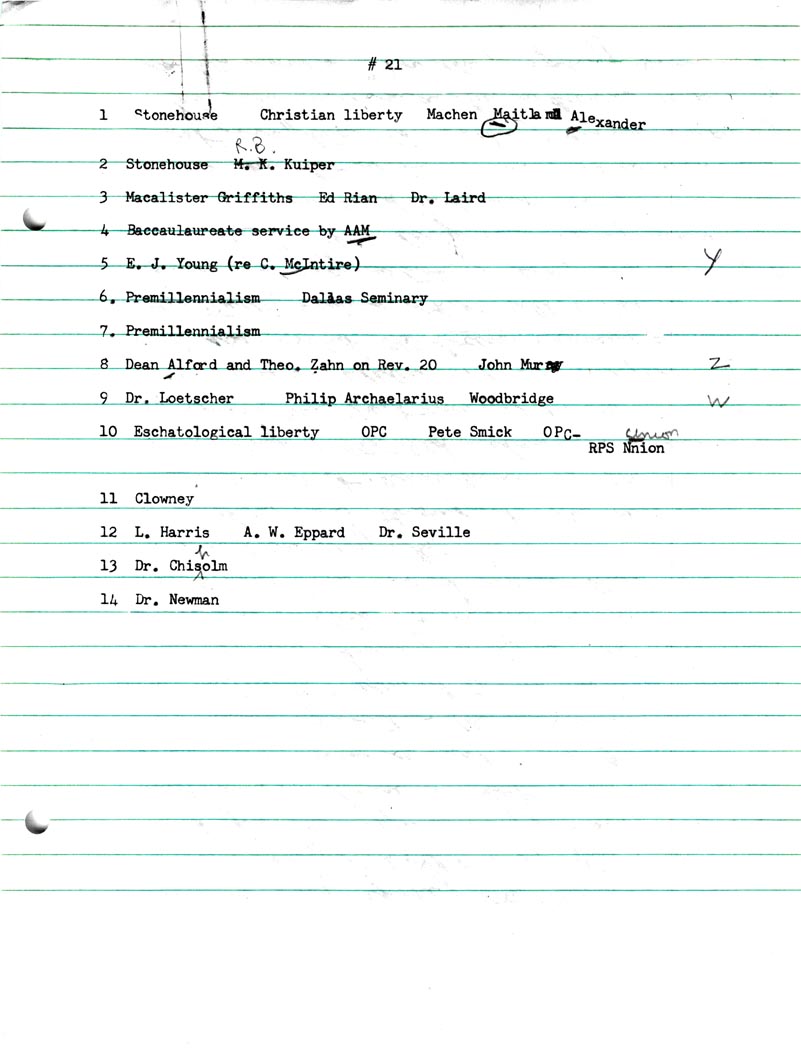 # 21
1 Stonehouse Christian liberty Machen Maitland Alexander
R.B.
2 Stonehouse M. K. Kuiper
3 Macalister Griffiths Ed Rian Dr. Laird
4 Baccaulaureate service by AAM
5 E. J. Young (re C. McIntire) Y
6. Premillennialism Dallas Seminary
7. Premillennialism
8 Dean Alford and Theo. Zahn on Rev. 20 John Murray Z
9 Dr. Loetscher Philip Archaelarius Woodbridge W
10 Eschatological liberty OPC Pete Smick OPC- Union
RPS Nnion
11 Clowney
12 L. Harris A. W. Eppard Dr. Seville
h
13 Dr. Chisolm
14 Dr. Newman